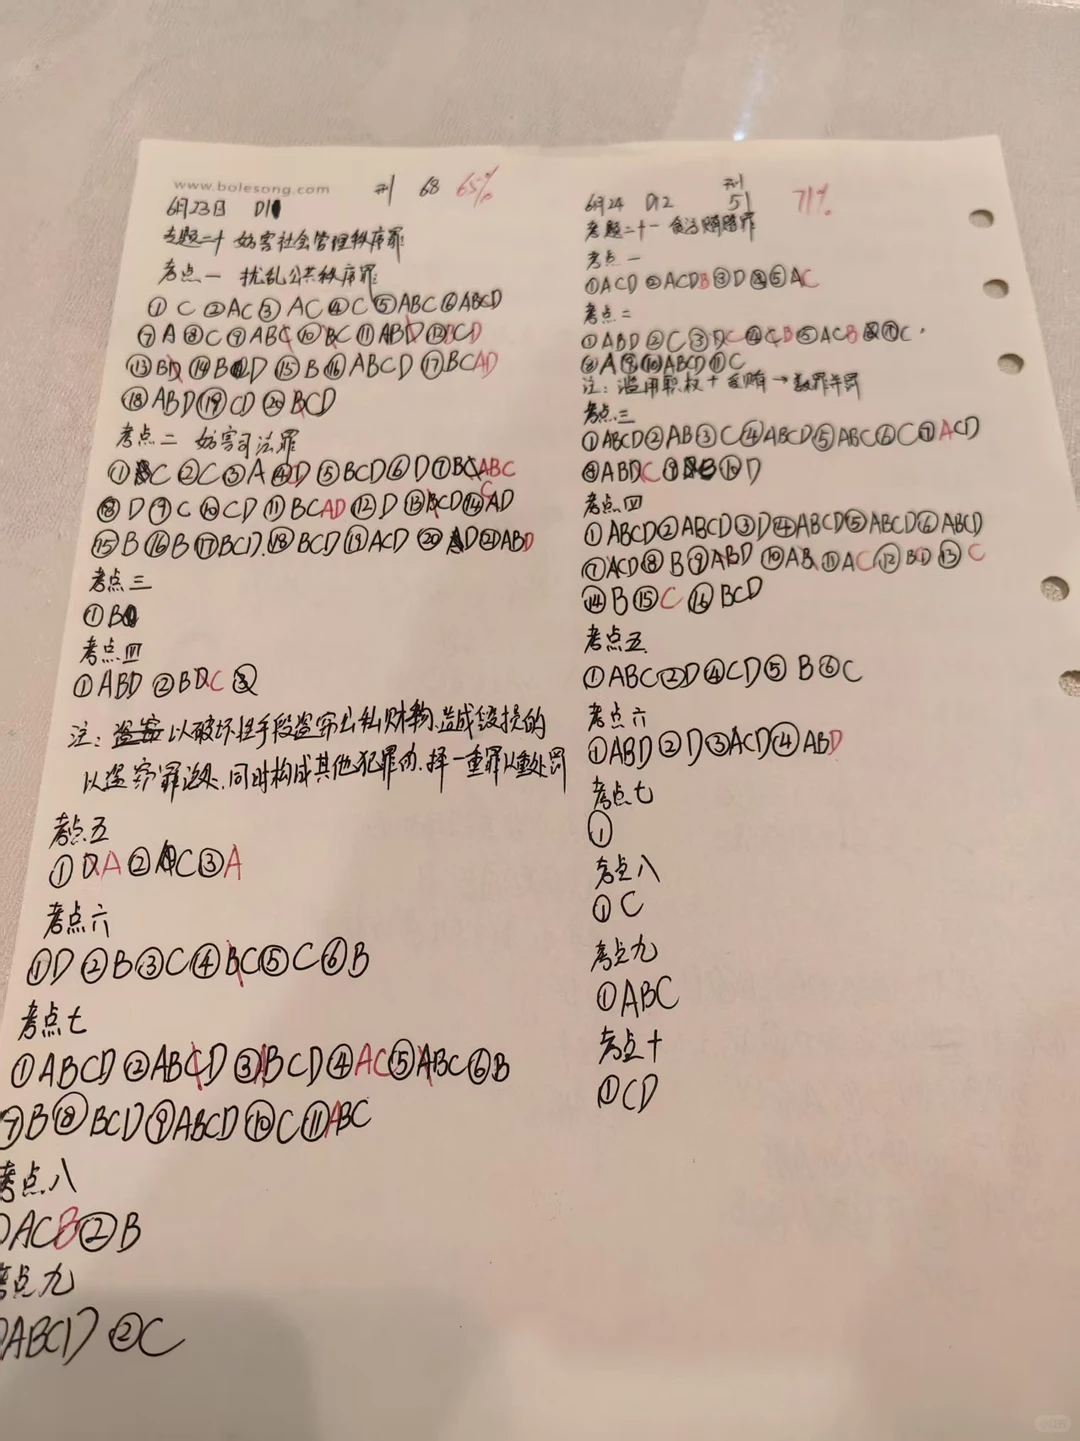 www.bolesong.com
刑 68 65%
6月23日 D11
专题二十 妨害社会管理秩序罪
考点一 扰乱公共秩序罪
①C ②AC ③AC ④C ⑤ABC ⑥ABCD
⑦A ⑧C ⑨ABC ⑩BC ⑪ABD ⑫BCD
⑬BD ⑭BD ⑮B ⑯ABCD ⑰BCAD
⑱ABD ⑲CD ⑳BCD
考点二 妨害司法罪
①C ②C ③A ④D ⑤BCD ⑥D ⑦BCABC
⑧D ⑨C ⑩CD ⑪BCAD ⑫D ⑬BCD ⑭CAD
⑮B ⑯B ⑰BCD ⑱BCD ⑲ACD ⑳D ㉑ABD
考点三
①B
考点四
①ABD ②BDC ③
注：以破坏性手段盗窃公私财物、造成毁损的
以盗窃罪论处.同时构成其他犯罪的.择一重罪从重处罚
考点五
①DA ②C ③A
考点六
①D ②B ③C ④BC ⑤C ⑥B
考点七
①ABCD ②ABCD ③ABCD ④AC ⑤ABC ⑥B
⑦B ⑧BCD ⑨ABCD ⑩C ⑪ABC
考点八
①ACB ②B
考点九
①ABCD ②C
刑
6月24 D12 51 71%
专题二十一 贪污贿赂罪
考点一
①ACD ②ACDB ③D ④⑤AC
考点二
①ABD ②C ③DC ④CB ⑤ACB ⑦C
⑧A ⑨⑩ABCD ⑪C
注：滥用职权+受贿→数罪并罚
考点三
①ABCD ②AB ③C ④ABCD ⑤ABC ⑥C ⑦ACD
⑧ABDC ⑨B ⑩D
考点四
①ABCD ②ABCD ③D ④ABCD ⑤ABCD ⑥ABCD
⑦ACD ⑧B ⑨ABD ⑩AB ⑪AC ⑫BD ⑬C
⑭B ⑮C ⑯BCD
考点五
①ABC ②D ④CD ⑤B ⑥C
考点六
①ABD ②D ③ACD ④ABD
考点七
①
考点八
①C
考点九
①ABC
考点十
①CD